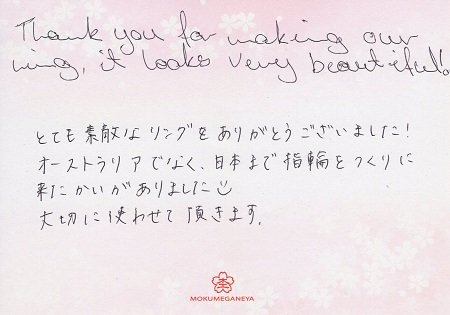 Thank you for making our
ring, it looks very beautiful!
とても素敵なリングをありがとうございました!
オーストラリアでなく、日本まで指輪をつくりに
来たかいがありました☺
大切に使わせて頂きます。
MOKUMEGANEYA